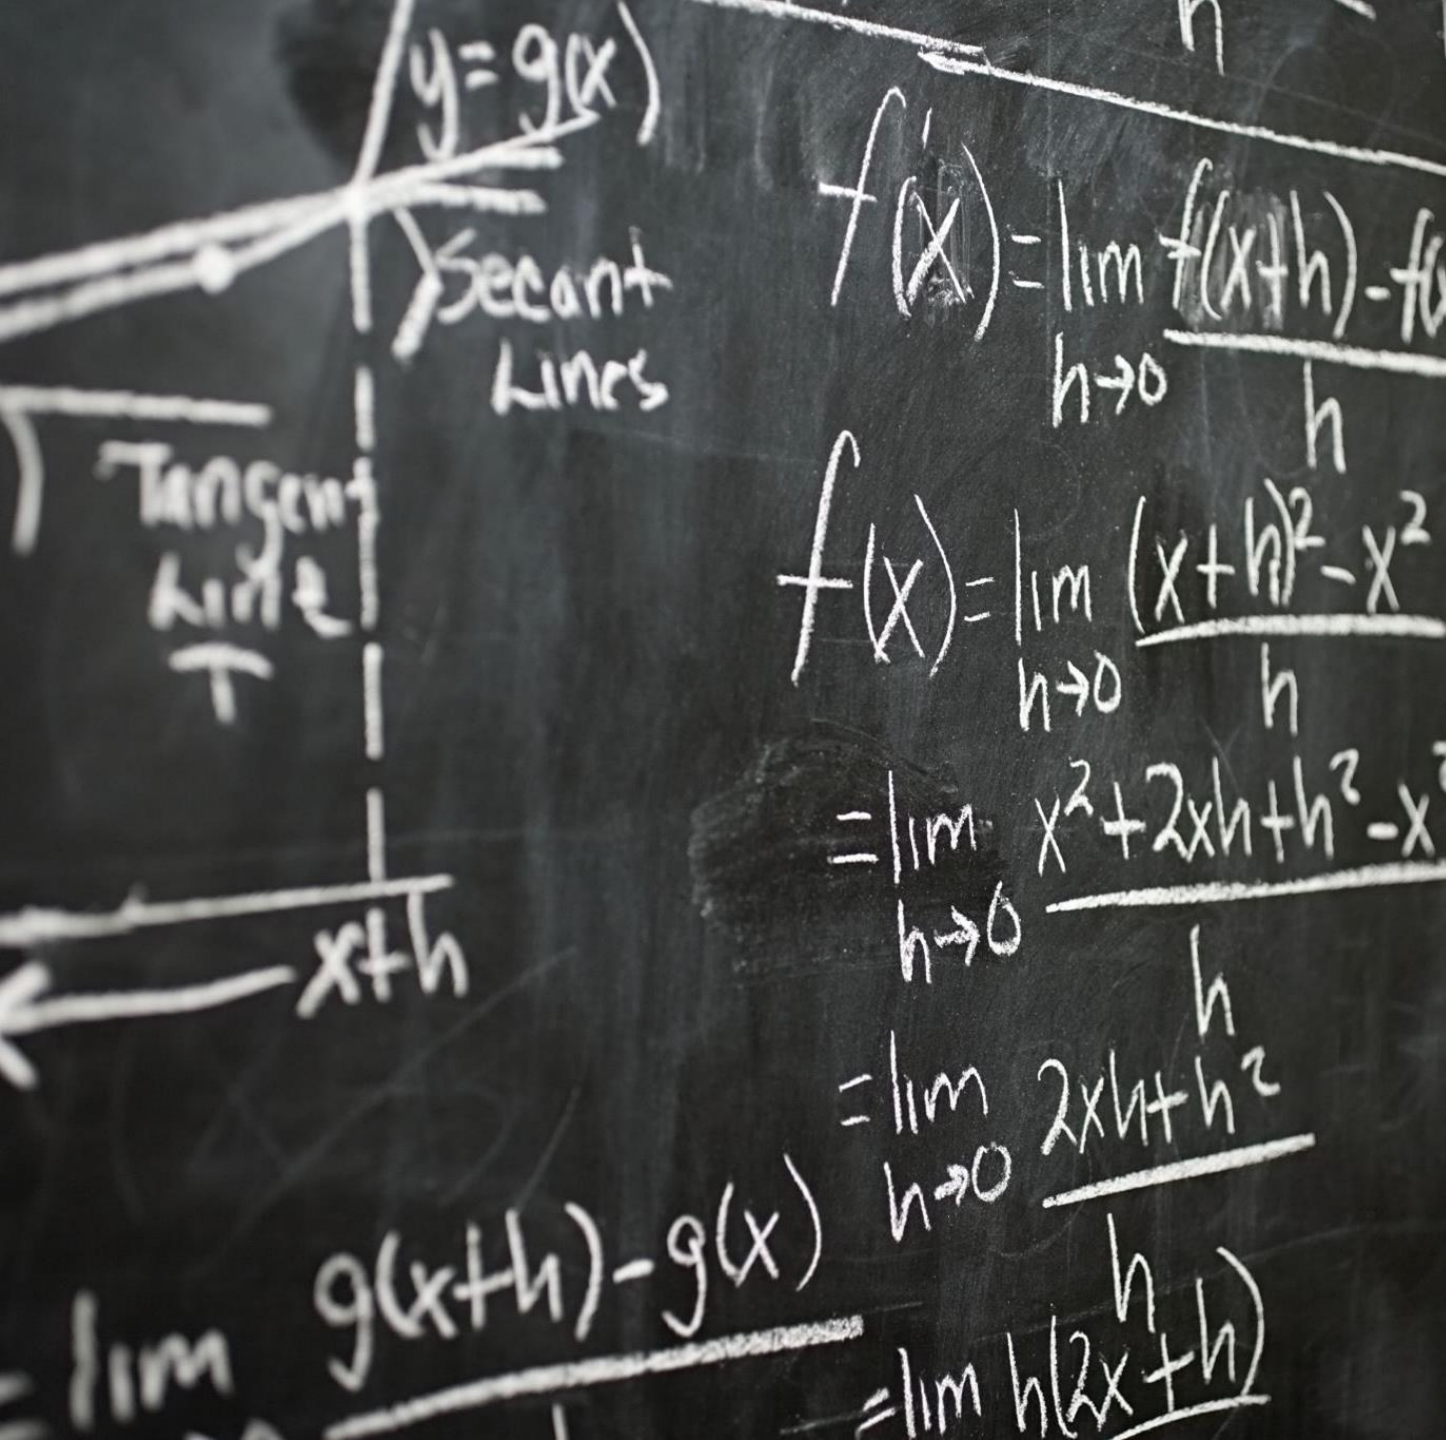 y=g(x)
Secant
Lines
Tangent
Line
T
x+h
= lim g(x+h)-g(x)
h
f'(x) = lim f(x+h)-f(x
h→0 h
f(x) = lim (x+h)²-x²
h→0 h
= lim x²+2xh+h²-x²
h→0 h
= lim 2xh+h²
h→0 h
= lim h(2x+h)